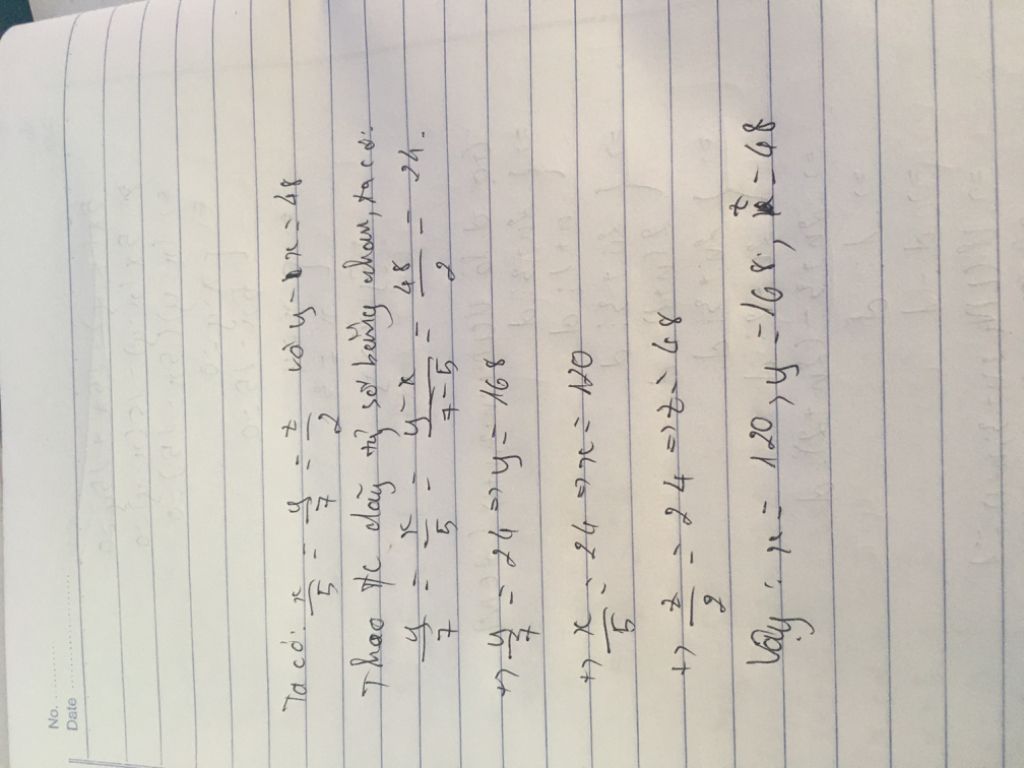 No. ............
Date ....................
Ta có: x/5 = y/7 = z/2 và y - x = 48
Theo t/c dãy tỷ số bằng nhau, ta có:
y/7 = x/5 = y-x/7-5 = 48/2 = 24.
+) y/7 = 24 => y = 168
+) x/5 = 24 => x = 120
+) z/2 = 24 => z = 48
Vậy: x = 120, y = 168, z = 48